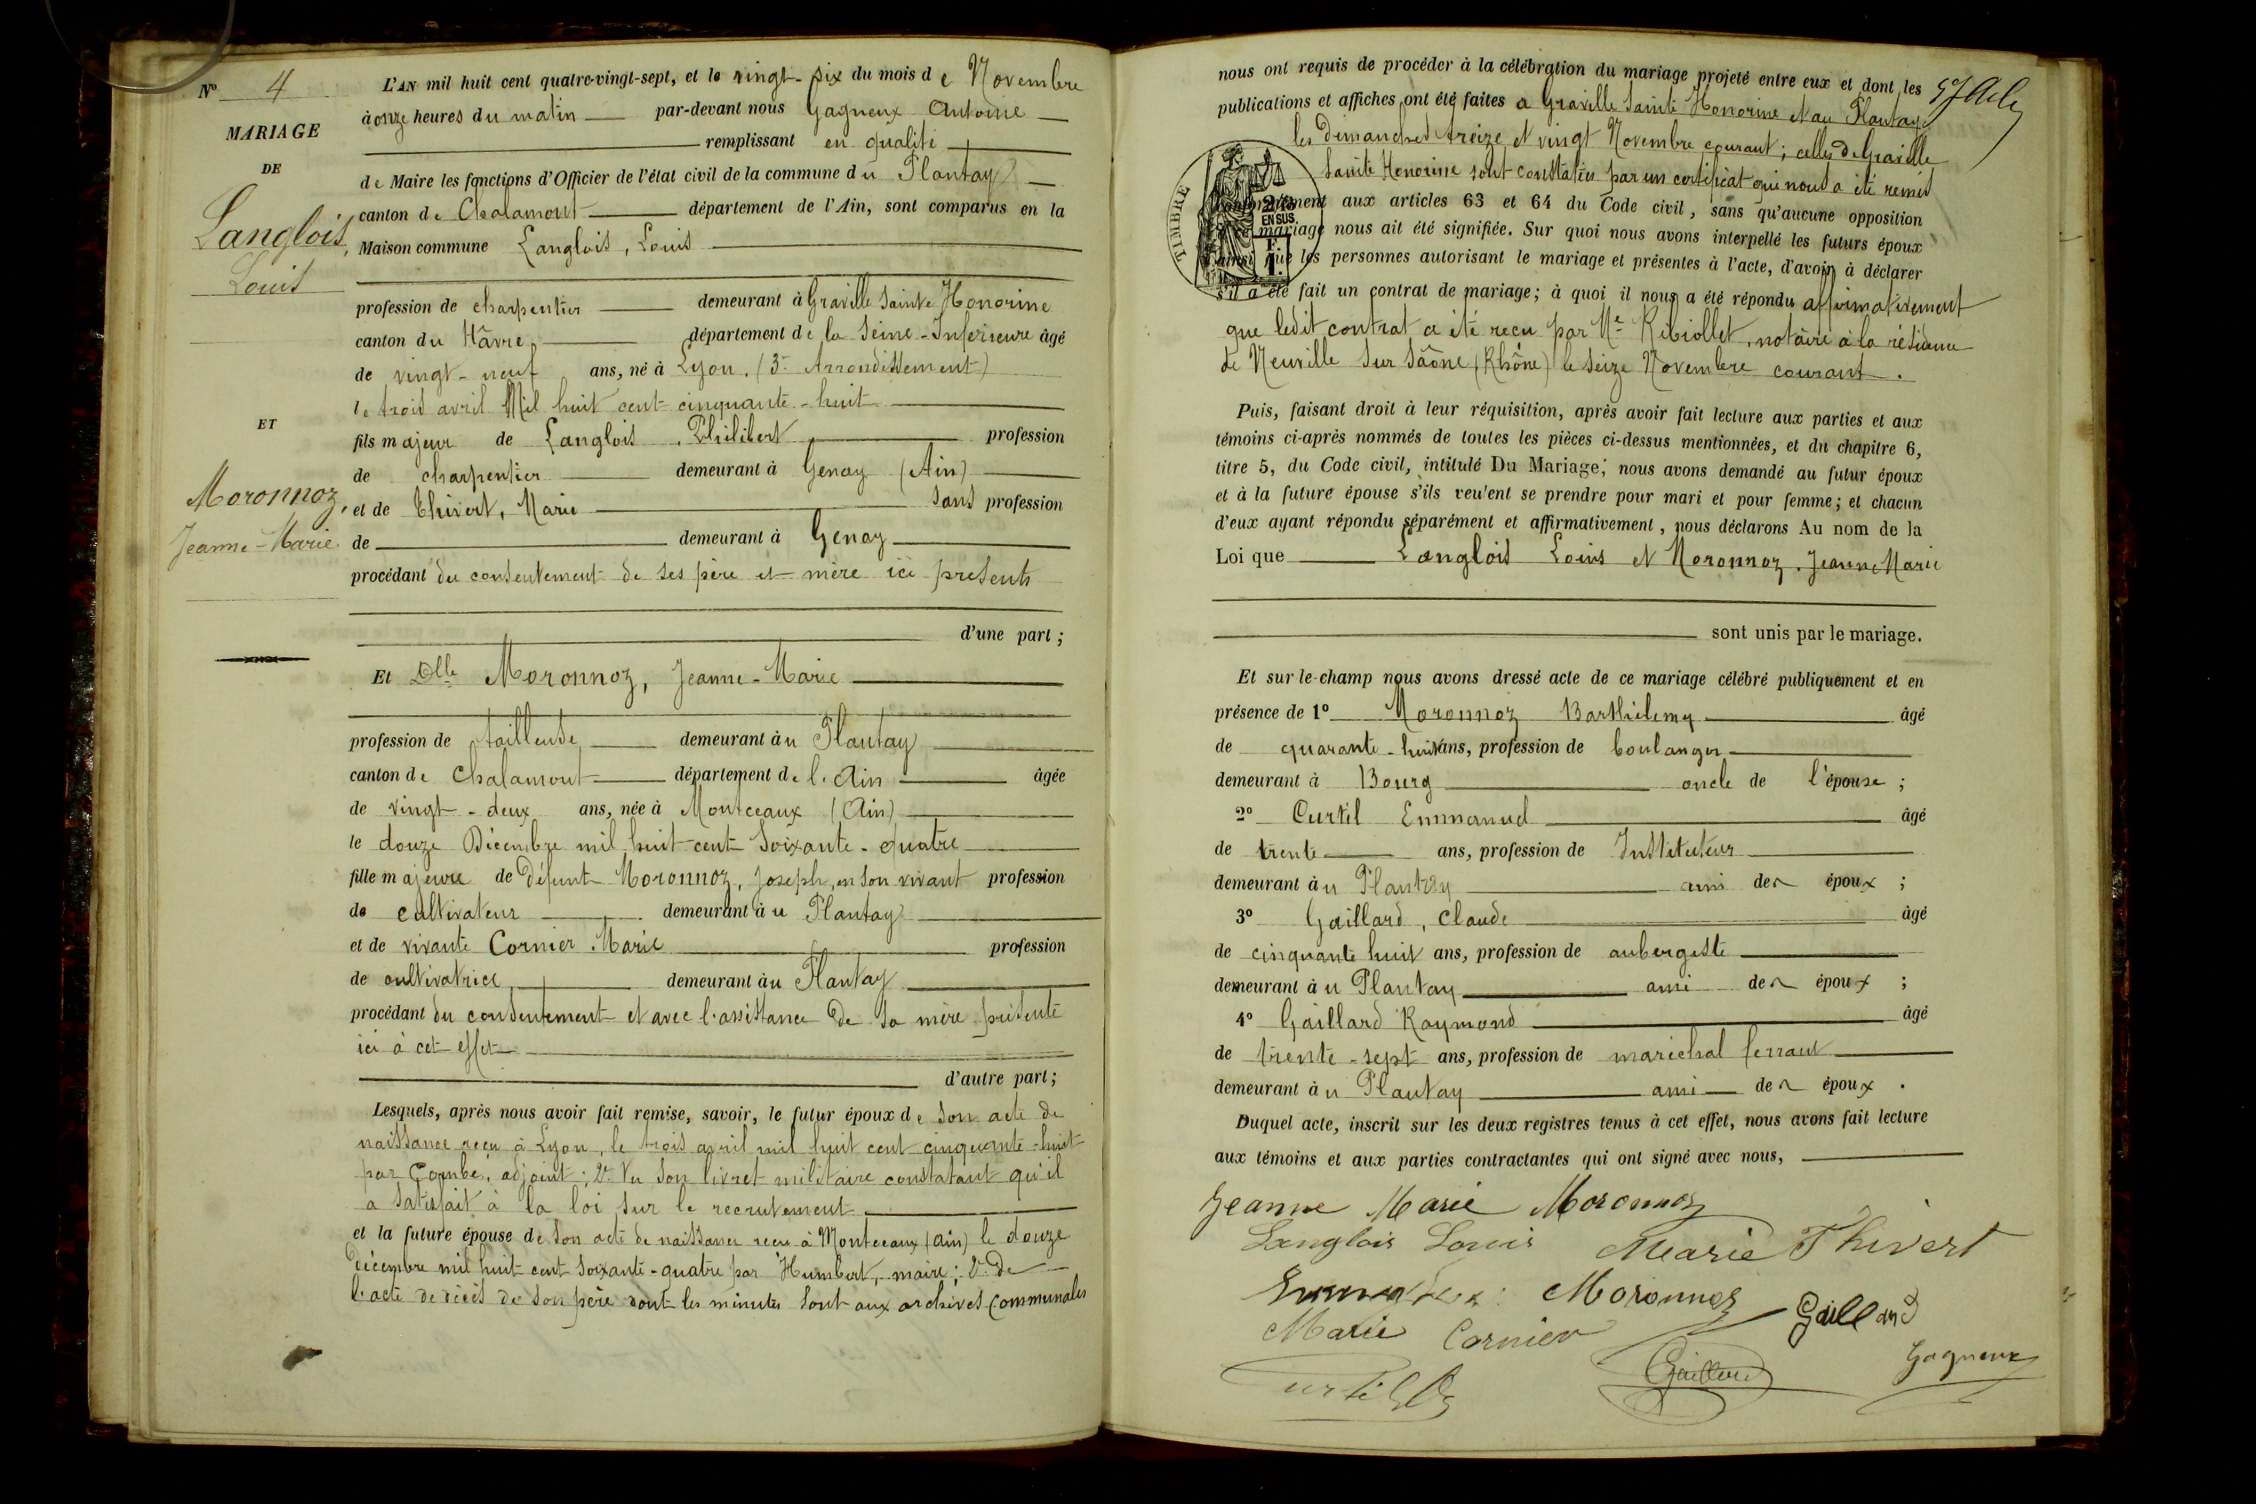 N° 4
MARIAGE
DE
Langlois,
Louis
ET
Moronnoz,
Jeanne-Marie
L'AN mil huit cent quatre-vingt-sept, et le vingt-six du mois de Novembre
à onze heures du matin par-devant nous Gagneux Antoine
remplissant en qualité
de Maire les fonctions d'Officier de l'état civil de la commune du Plantay
canton de Chalamont département de l'Ain, sont comparus en la
Maison commune Langlois, Louis
profession de charpentier demeurant à Graville Sainte Honorine
canton du Hâvre département de la Seine-Inférieure âgé
de vingt-neuf ans, né à Lyon, (3e Arrondissement)
le trois avril Mil huit cent cinquante-huit
fils majeur de Langlois, Philibert profession
de charpentier demeurant à Genay (Ain)
et de Thivert, Marie sans profession
de demeurant à Genay
procédant du consentement de ses père et mère ici présents
d'une part ;
Et Dlle Moronnoz, Jeanne-Marie
profession de tailleuse demeurant au Plantay
canton de Chalamont département de l'Ain âgée
de vingt-deux ans, née à Montceaux (Ain)
le douze Décembre mil huit cent soixante-quatre
fille majeure de défunt Moronnoz, Joseph, en son vivant profession
de cultivateur demeurant au Plantay
et de vivante Cornier Marie profession
de cultivatrice demeurant au Plantay
procédant du consentement et avec l'assistance de sa mère présente
ici à cet effet
d'autre part ;
Lesquels, après nous avoir fait remise, savoir, le futur époux de son acte de
naissance reçu à Lyon, le trois avril mil huit cent cinquante-huit
par Combe, adjoint ; 2° Vu son livret militaire constatant qu'il
a satisfait à la loi sur le recrutement
et la future épouse de son acte de naissance reçu à Montceaux (Ain) le douze
décembre mil huit cent soixante-quatre par Humbert, maire ; 2° de
l'acte de décès de son père dont les minutes sont aux archives Communales
nous ont requis de procéder à la célébration du mariage projeté entre eux et dont les
publications et affiches ont été faites à Graville Sainte Honorine et au Plantay
les dimanches treize et vingt Novembre courant ; celles de Graville
Sainte Honorine sont constatées par un certificat qui nous a été remis
conformément aux articles 63 et 64 du Code civil, sans qu'aucune opposition
mariage nous ait été signifiée. Sur quoi nous avons interpellé les futurs époux
ainsi que les personnes autorisant le mariage et présentes à l'acte, d'avoir à déclarer
s'il a été fait un contrat de mariage ; à quoi il nous a été répondu affirmativement
que ledit contrat a été reçu par Me Ribiollet, notaire à la résidence
de Neuville sur Saône, (Rhône) le seize Novembre courant.
TIMBRE
2/10
EN SUS.
F.
1.
Puis, faisant droit à leur réquisition, après avoir fait lecture aux parties et aux
témoins ci-après nommés de toutes les pièces ci-dessus mentionnées, et du chapitre 6,
titre 5, du Code civil, intitulé Du Mariage, nous avons demandé au futur époux
et à la future épouse s'ils veulent se prendre pour mari et pour femme ; et chacun
d'eux ayant répondu séparément et affirmativement, nous déclarons Au nom de la
Loi que Langlois Louis et Moronnoz. Jeanne Marie
sont unis par le mariage.
Et sur-le-champ nous avons dressé acte de ce mariage célébré publiquement et en
présence de 1° Moronnoz Barthélemy âgé
de quarante-huit ans, profession de boulanger
demeurant à Bourg oncle de l'épouse ;
2° Curtil Emmanuel âgé
de trente ans, profession de Instituteur
demeurant au Plantay ami des époux ;
3° Gaillard, Claude âgé
de cinquante huit ans, profession de aubergiste
demeurant au Plantay ami des époux ;
4° Gaillard Raymond âgé
de trente-sept ans, profession de maréchal ferrant
demeurant au Plantay ami des époux.
Duquel acte, inscrit sur les deux registres tenus à cet effet, nous avons fait lecture
aux témoins et aux parties contractantes qui ont signé avec nous,
Jeanne Marie Moronnoz
Langlois Louis Marie Thivert
Moronnoz Gaillard
Marie Cornier
Curtil Gaillard Gagneux